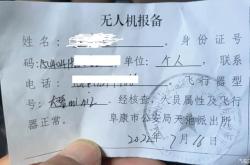 无人机报备
姓名: 身份证号
码: 单位: 个人 . 联系
电话: 飞行器型
号: 大疆mini2 . 经核查, 人员属性及飞行
器正常.
阜康市公安局天池派出所
2022年7月16日